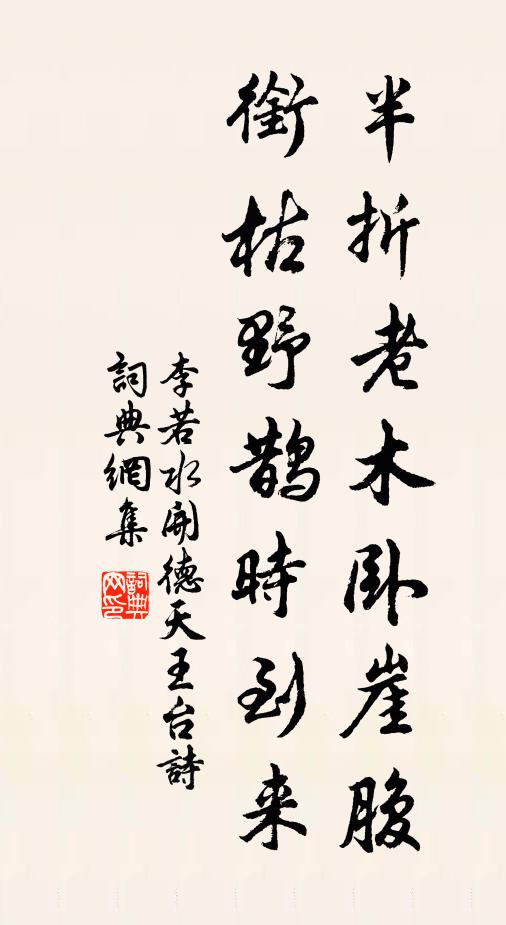 半折老木卧崖腹
衔枯野鹊時到来
李若水開德天王台詩
詞典網集
詞典网印